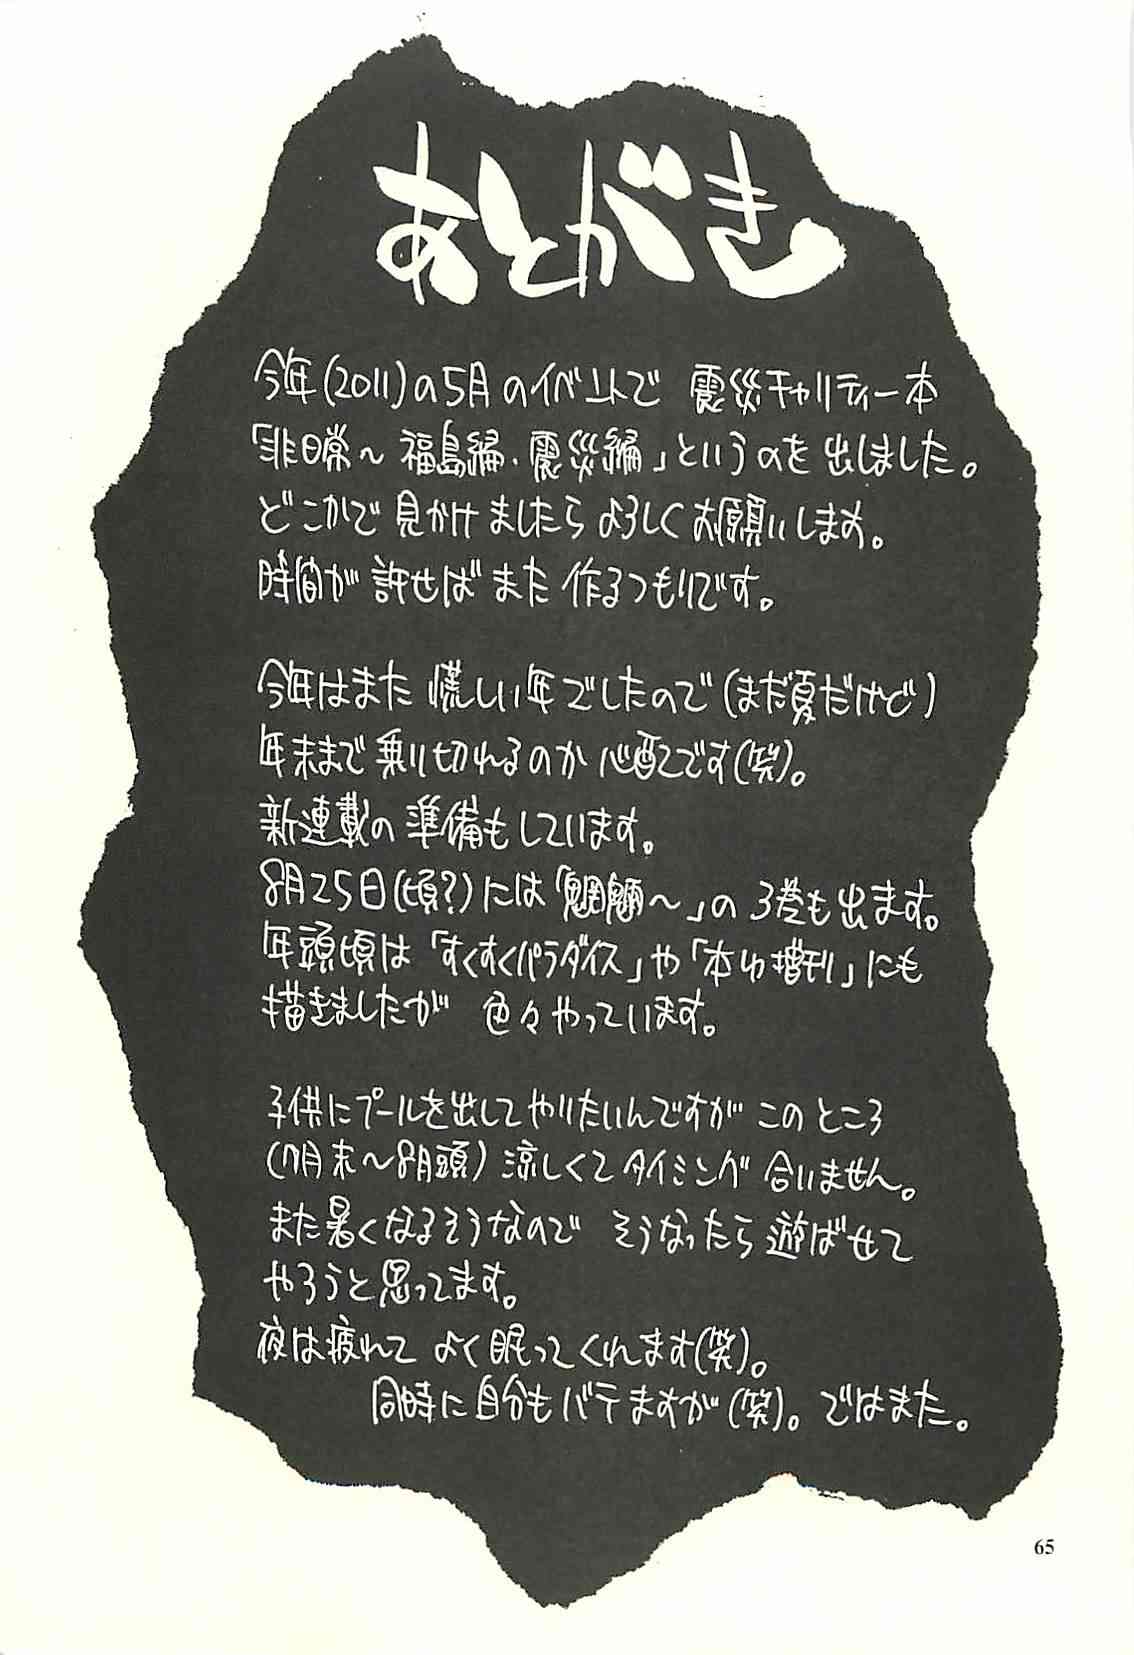 あとがき
今年(2011)の5月のイベントで 震災チャリティー本
「非日常～福島編・震災編」というのを出しました。
どこかで見かけましたらよろしくお願いします。
時間が許せばまた作るつもりです。
今年はまた慌しい年でしたので(まだ夏だけど)
年末まで乗り切れるのか心配です(笑)。
新連載の準備もしています。
8月25日(頃?)には「魍魎～」の3巻も出ます。
年頭頃は「すくすくパラダイス」や「本わ増刊」にも
描きましたが 色々やっています。
子供にプールを出してやりたいんですがこのところ
(7月末～8月頭)涼しくてタイミング合いません。
また暑くなるそうなので そうなったら遊ばせて
やろうと思ってます。
夜は疲れて よく眠ってくれます(笑)。
同時に自分もバテますが(笑)。ではまた。
65